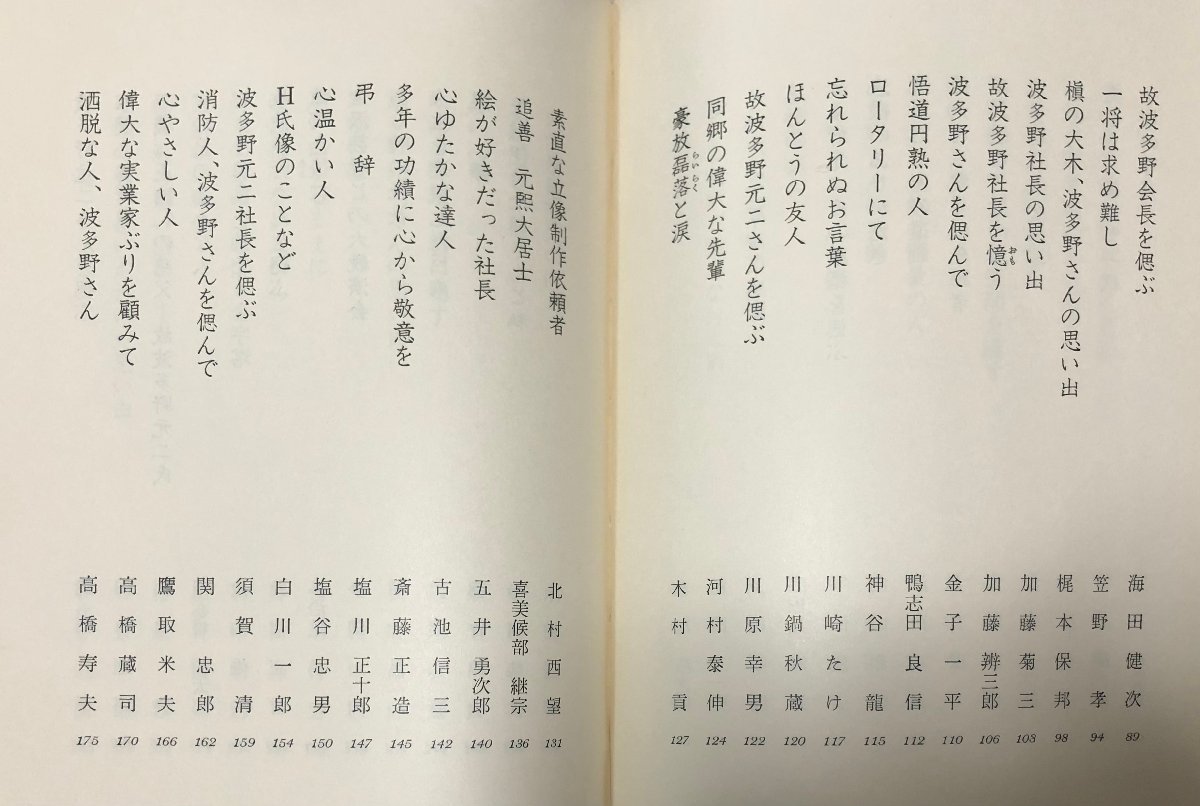 故波多野会長を偲ぶ 海田健次 89
一将は求め難し 笠野孝 94
槇の大木、波多野さんの思い出 梶本保邦 98
波多野社長の思い出 加藤菊三 103
故波多野社長を憶う おも 加藤辨三郎 106
波多野さんを偲んで 金子一平 110
悟道円熟の人 鴨志田良信 112
ロータリーにて 神谷龍 115
忘れられぬお言葉 川崎たけ 117
ほんとうの友人 川鍋秋蔵 120
故波多野元二さんを偲ぶ 川原幸男 122
同郷の偉大な先輩 河村泰伸 124
豪放磊落と涙 らいらく 木村貢 127
素直な立像制作依頼者 北村西望 131
追善 元熙大居士 喜美候部継宗 136
絵が好きだった社長 五井勇次郎 140
心ゆたかな達人 古池信三 142
多年の功績に心から敬意を 斎藤正造 145
弔辞 塩川正十郎 147
心温かい人 塩谷忠男 150
H氏像のことなど 白川一郎 154
波多野元二社長を偲ぶ 須賀清 159
消防人、波多野さんを偲んで 関忠郎 162
心やさしい人 鷹取米夫 166
偉大な実業家ぶりを顧みて 高橋蔵司 170
洒脱な人、波多野さん 高橋寿夫 175